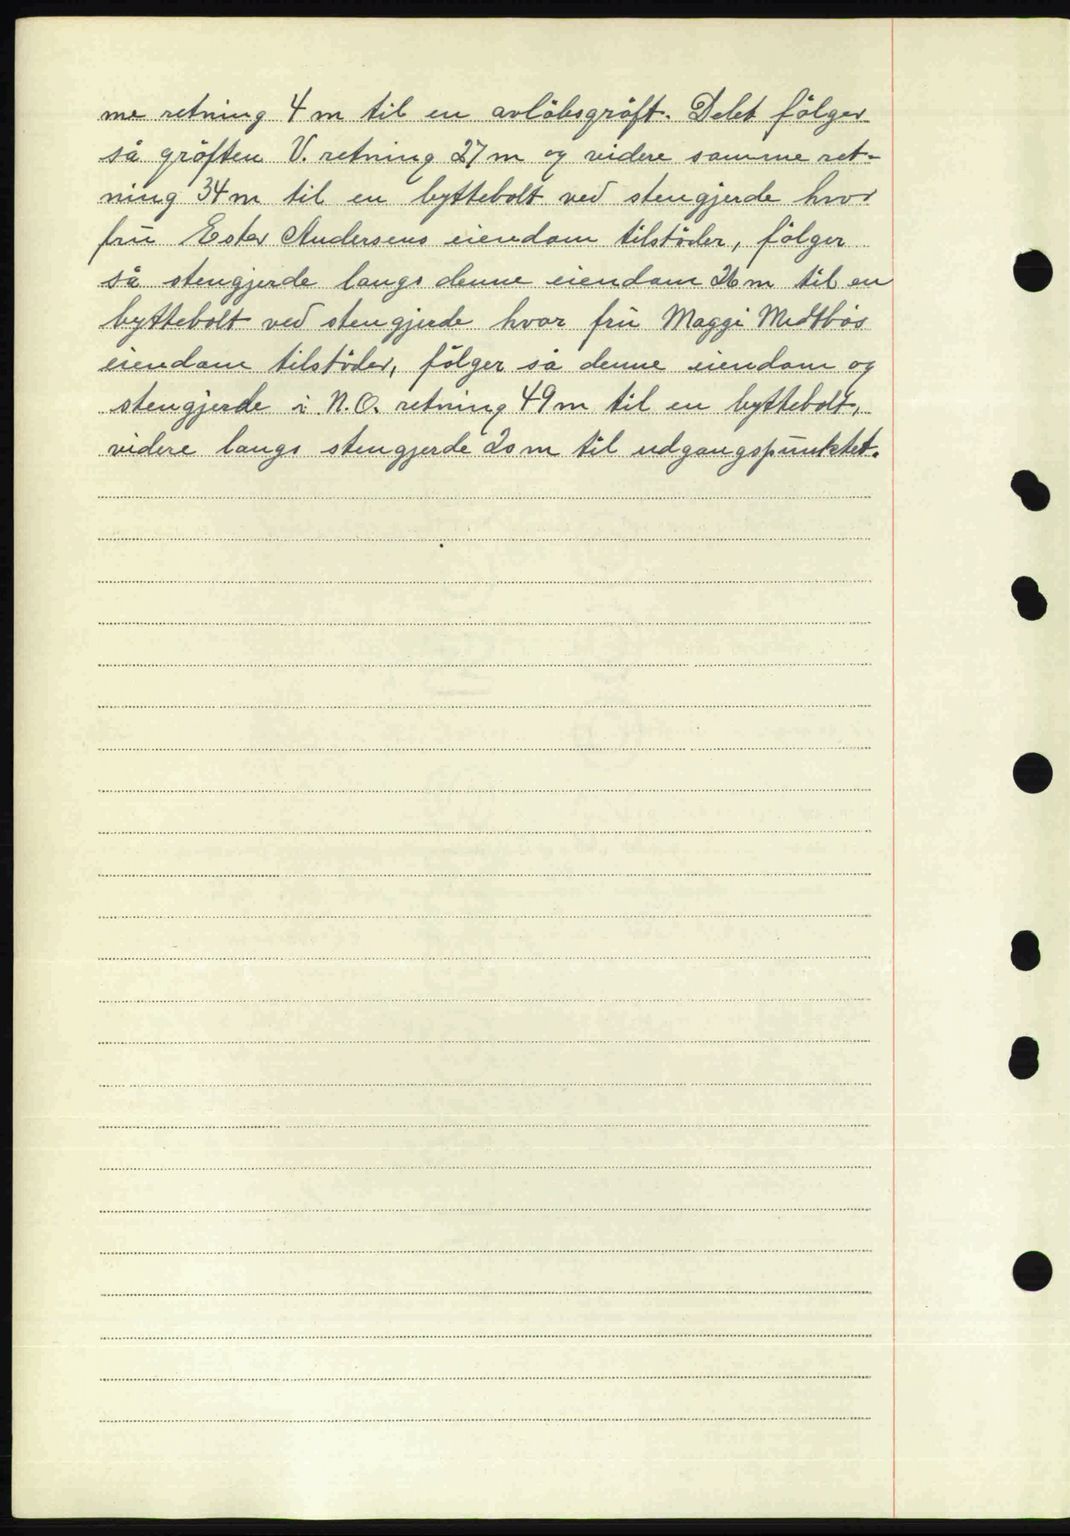 me retning 4 m til en avlöbsgröft. Delet fölger
så gröften V. retning 27 m og videre samme ret-
ning 34 m til en byttebolt ved stengjerde hvor
fru Ester Andersens eiendom tilstöder, fölger
så stengjerde langs denne eiendom 26 m til en
byttebolt ved stengjerde hvor fru Maggi Midtbös
eiendom tilstöder, fölger så denne eiendom og
stengjerde i N.O. retning 49 m til en byttebolt,
videre langs stengjerde 20 m til udgangspunktet.